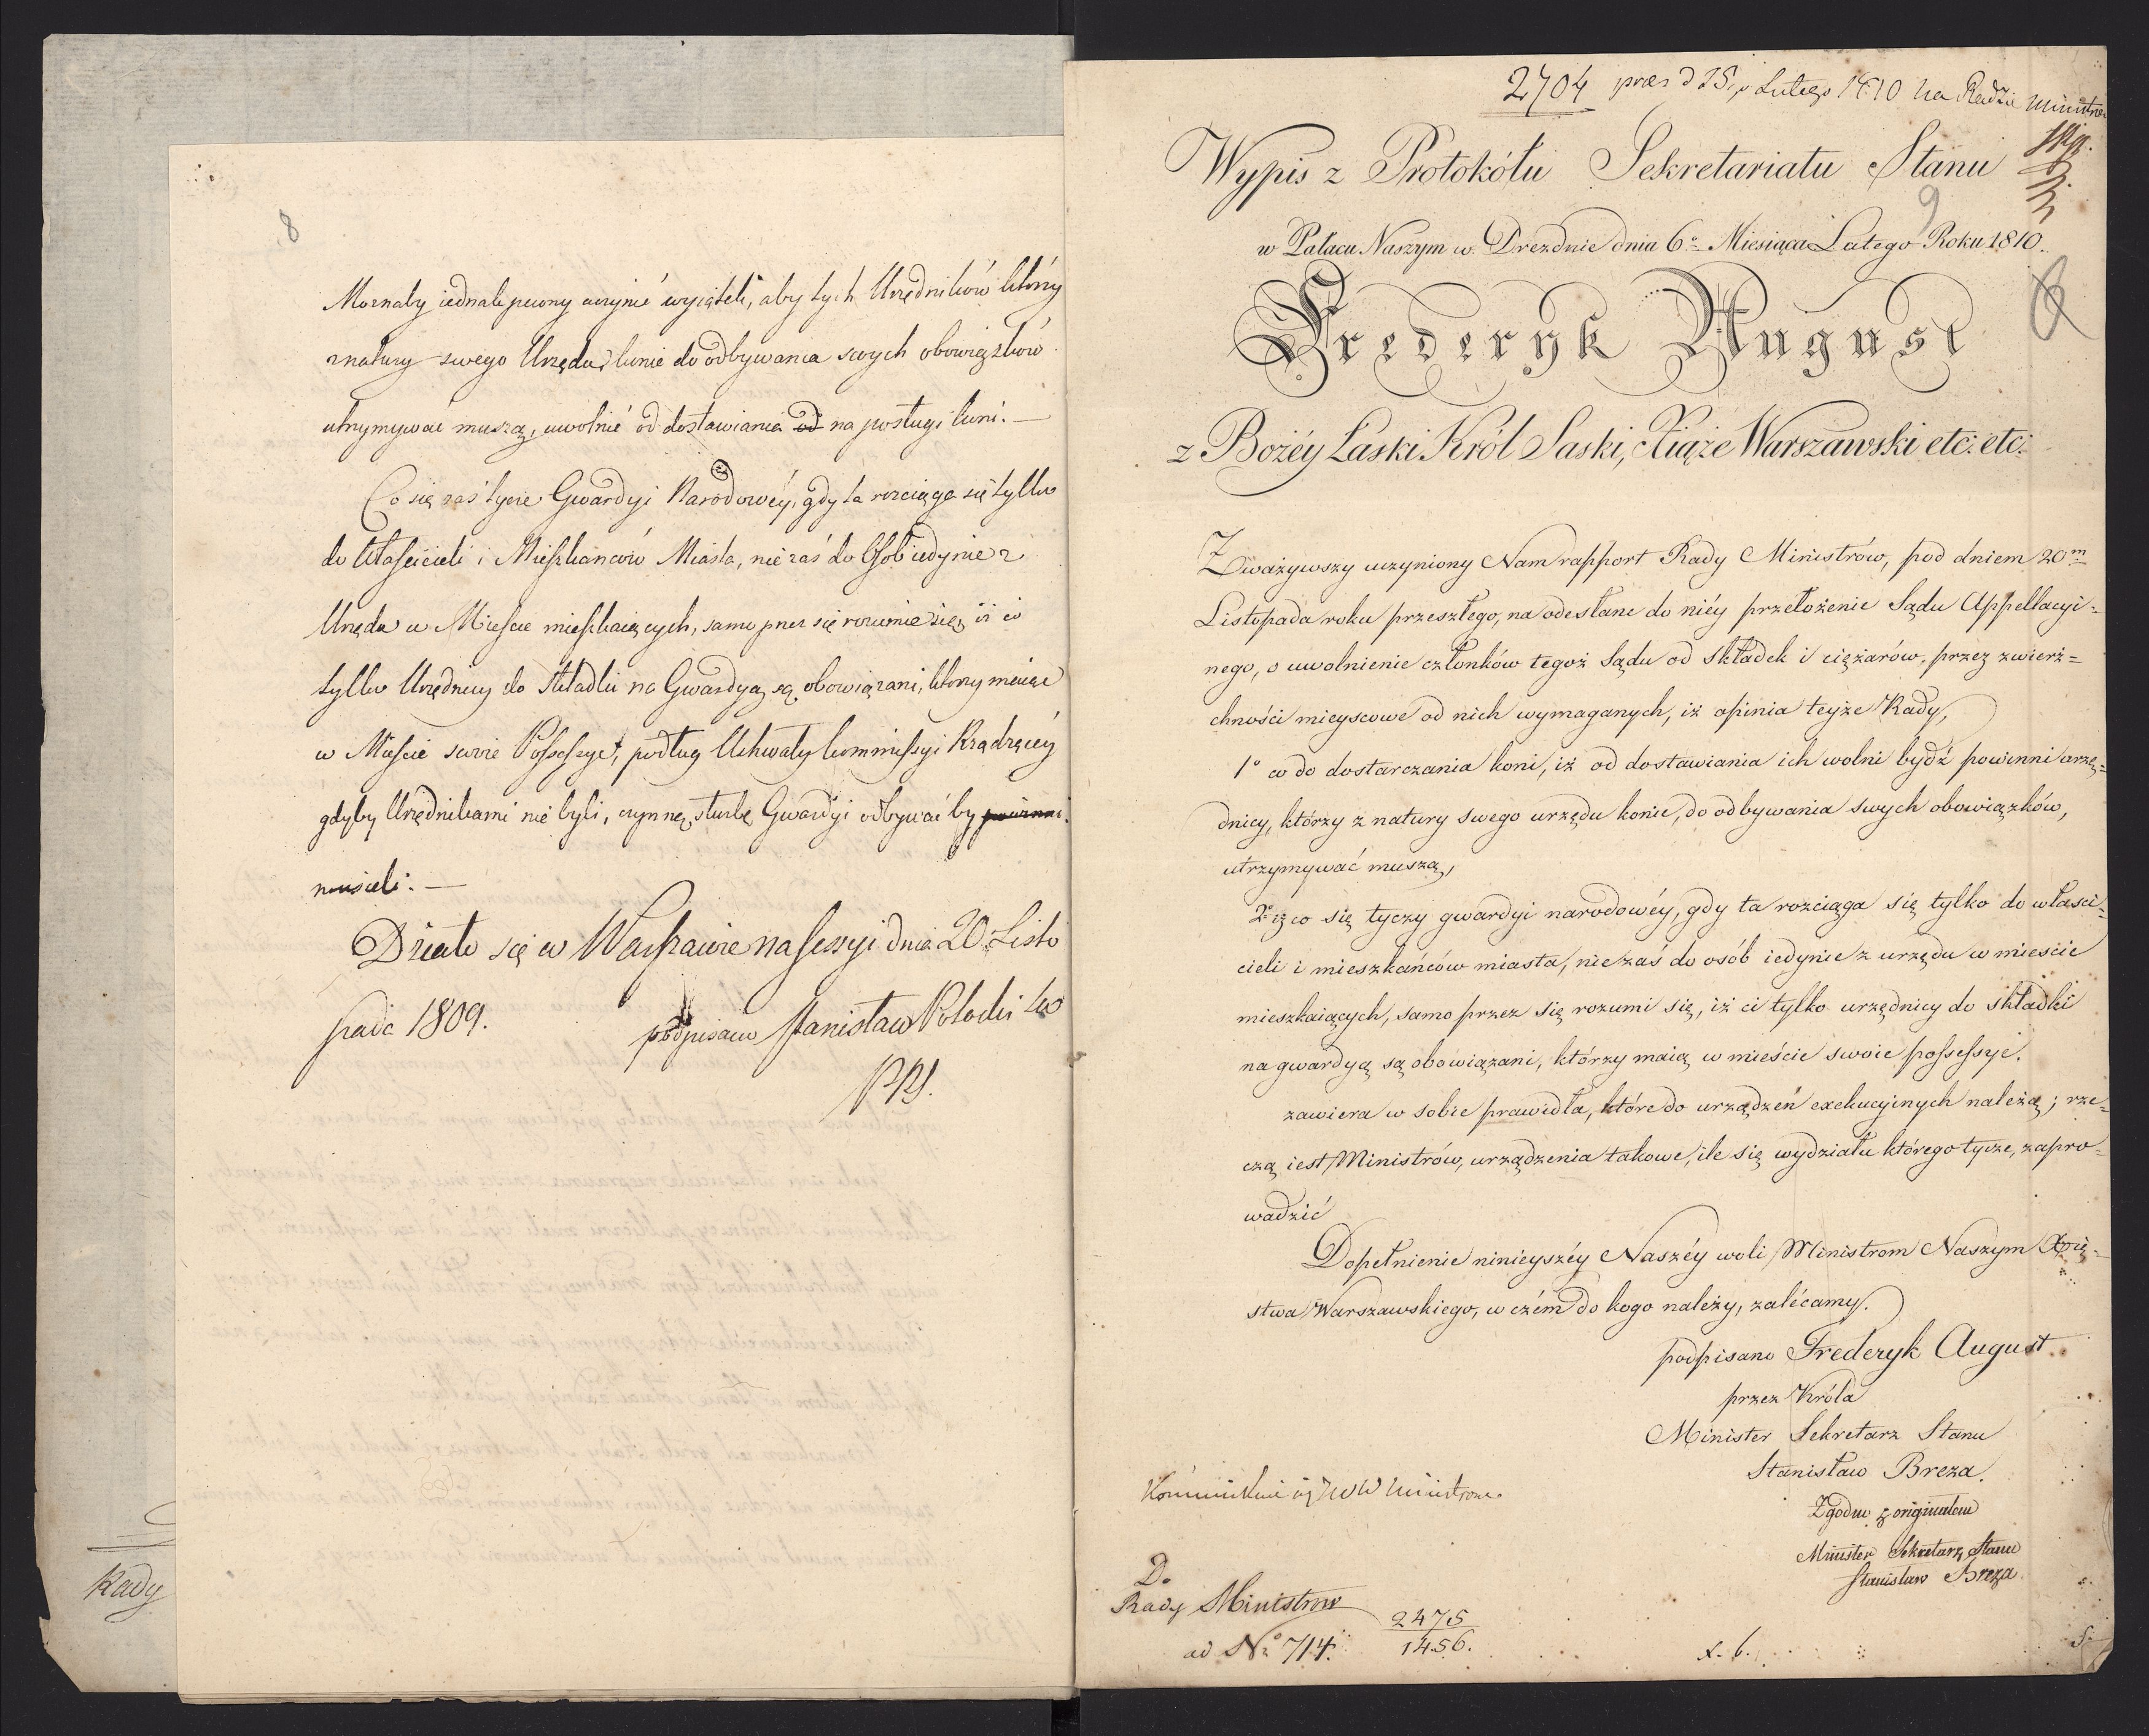 8
Możnaby iednak pewny uczynić wyiątek, aby tych Urzędników którzy
z natury swego Urzędu konie do odbywania swych obowiązków
utrzymywać muszą, uwolnić od dostawiania od na posługi koni. —
Co się zaś tycze Gwardyi Narodowéy, gdy ta rozciąga się tylko
do Właścicieli i Mieszkańców Miasta, nie zaś do Osób iedynie z
Urzędu w Mieście mieszkaiących, samo przez się rozumie się, iż ci
tylko Urzędnicy do składki na Gwardyą są obowiązani, którzy maiąc
w Mieście swoie Possessye, podług Uchwały Kommissyi Rządzącéy
gdyby Urzędnikami nie byli, czynną służbę Gwardyi odbywać by powinni
musieli. —
Działo się w Warszawie na Sessyi dnia 20. Listo
pada 1809. podpisano Stanisław Potocki
PRS.
Rady
2704 praes d 15 Lutego 1810 na Radzie Ministrów
Wypis z Protokółu Sekretariatu Stanu
9
w Pałacu Naszym w Dreznie dnia 6o Miesiąca Lutego Roku 1810.
Frederyk August
z Bożéy Łaski Król Saski, Xiąże Warszawski etc: etc:
Zważywszy uczyniony Nam rapport Rady Ministrów, pod dniem 20m
Listopada roku przeszłego, na odesłane do niéy przełożenie Sądu Appellacyi=
nego, o uwolnienie członków tegoż Sądu od składek i ciężarów, przez zwierz=
chności mieyscowe od nich wymaganych, iż opinia teyże Rady,
1o co do dostarczania koni, iż od dostawiania ich wolni bydź powinni urzę=
dnicy, którzy z natury swego urzędu konie, do odbywania swych obowiązków,
utrzymywać muszą,
2o iż co się tyczy gwardyi narodowéy, gdy ta rozciąga się tylko do właści=
cieli i mieszkańców miasta, nie zaś do osób iedynie z urzędu w mieście
mieszkaiących, samo przez się rozumi się, iż ci tylko urzędnicy do składki
na gwardyą są obowiązani, którzy maią w mieście swoie possessye.
zawiera w sobie prawidła, które do urządzeń exekucyinych należą; rze=
czą iest Ministrów, urządzenia takowe, ile się wydziału którego tycze, zapro=
wadzić
Dopełnienie ninieyszéy Naszéy woli Ministrom Naszym Xię=
stwa Warszawskiego, w czém do kogo należy, zalécamy.
podpisano Frederyk August.
przez Króla
Minister Sekretarz Stanu
Stanisław Breza.
Zgodno z originałem
Minister Sekretarz Stanu
Stanisław Breza
JWW Ministrom
Do
Rady Ministrów
ad No 714.
2475
1456.